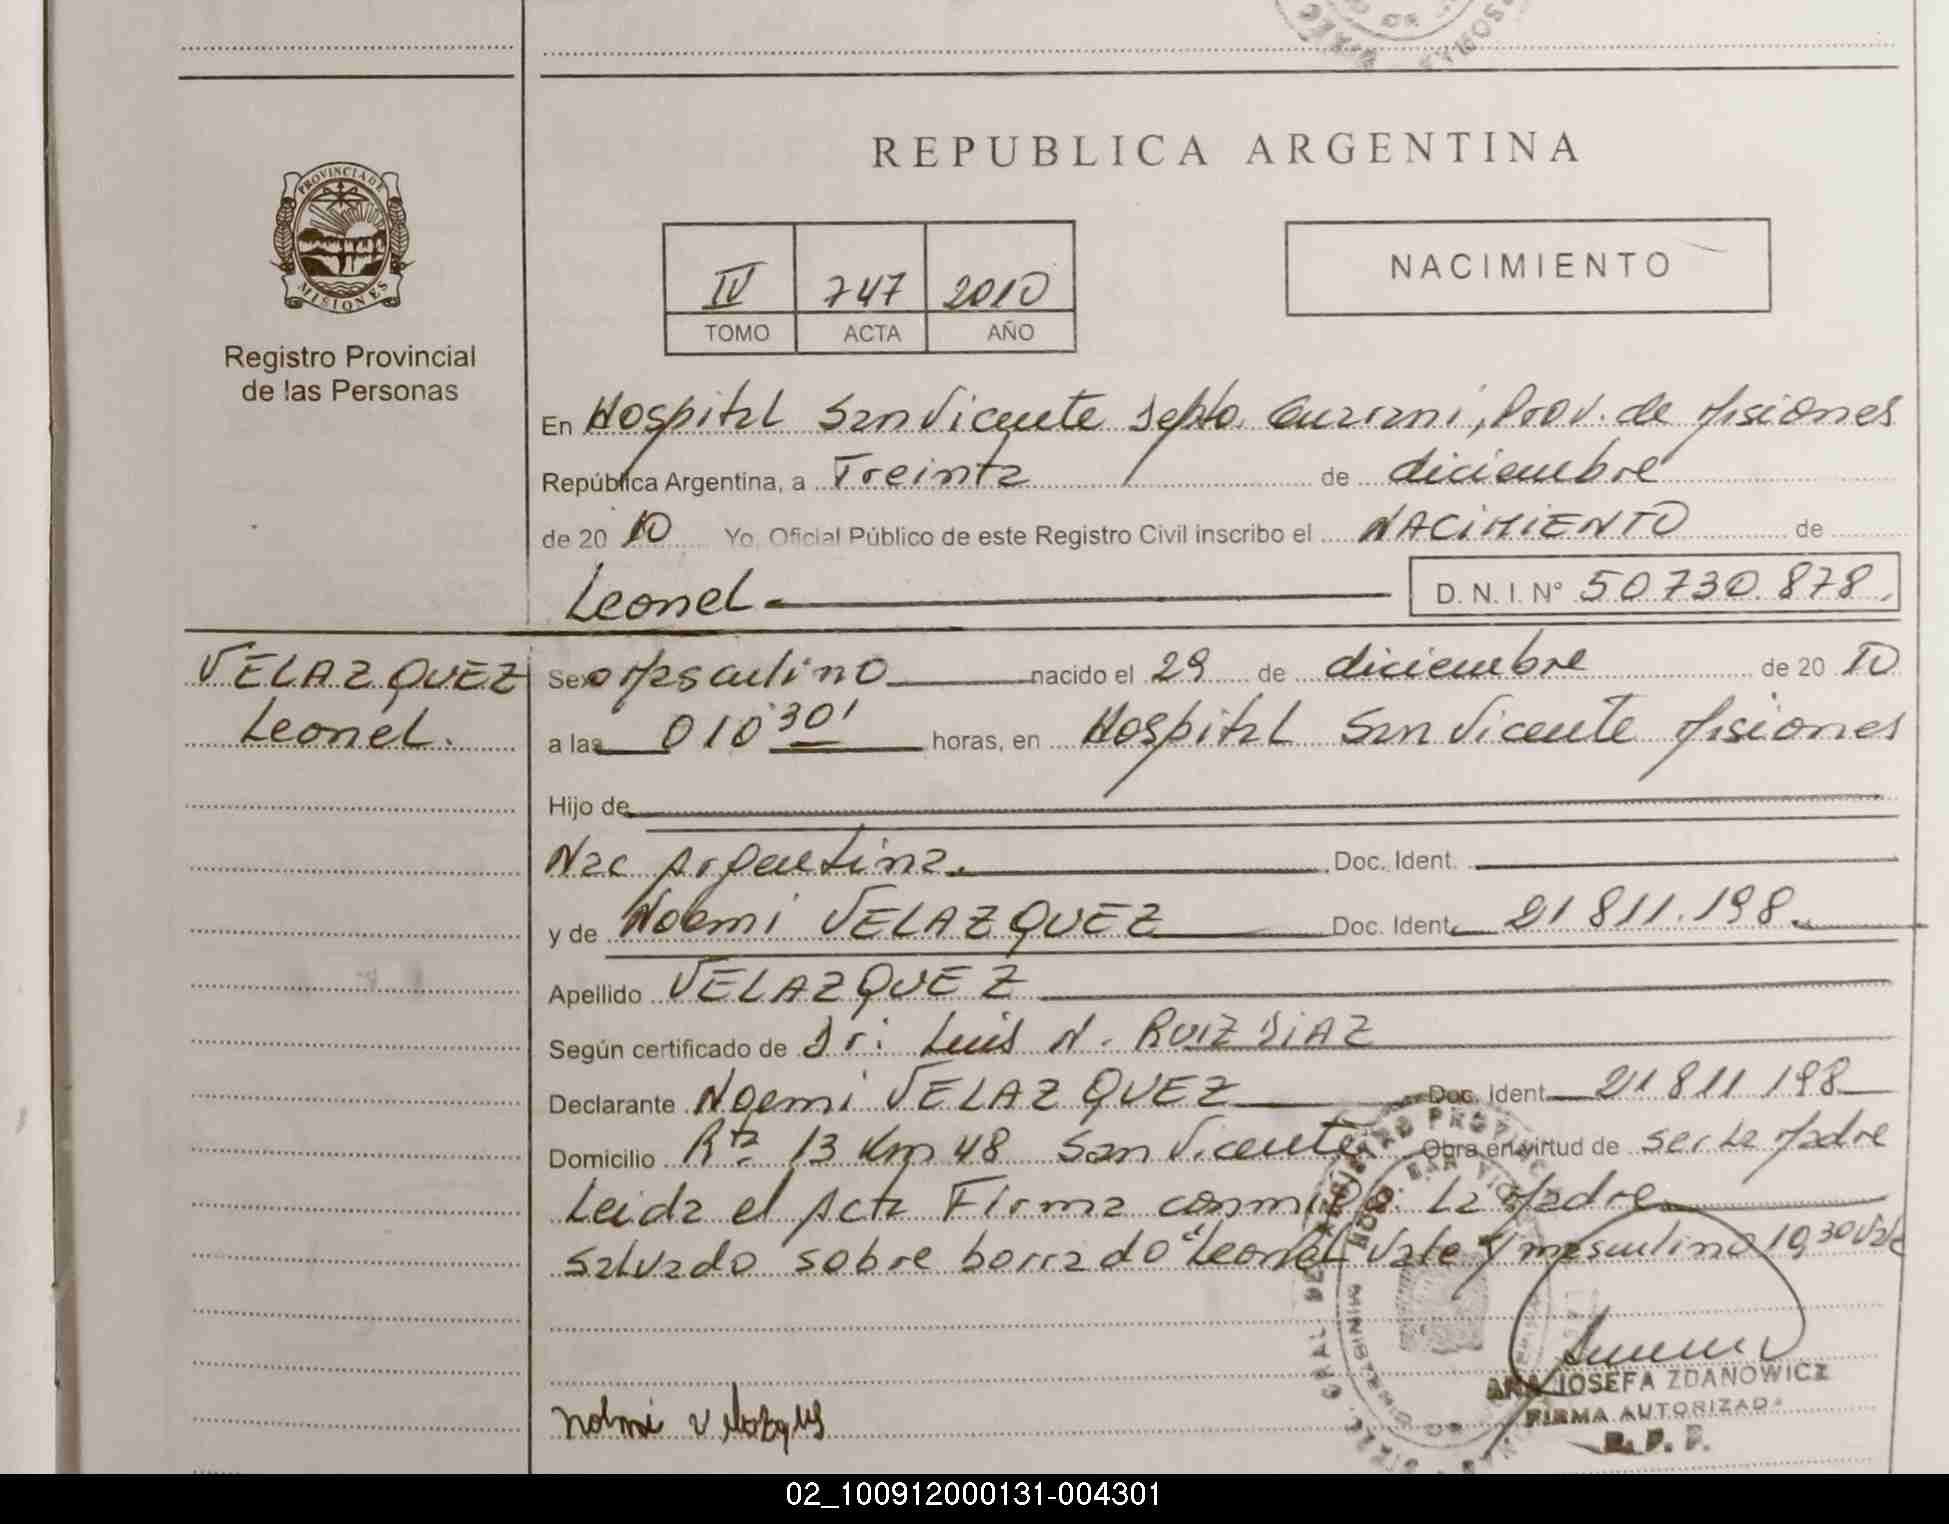 REPUBLICA ARGENTINA
PROVINCIA DE
MISIONES
Registro Provincial
de las Personas
IV 747 2010
TOMO ACTA AÑO
NACIMIENTO
En Hospital San Vicente Depto. Guarani, Prov. de Misiones
República Argentina, a Treinta de diciembre
de 20 10 Yo, Oficial Público de este Registro Civil inscribo el NACIMIENTO de
Leonel D. N. I. N° 50.730.878
VELAZQUEZ
Leonel.
Sexo Masculino nacido el 29 de diciembre de 20 10
a las 010 30' horas, en Hospital San Vicente Misiones
Hijo de
Nac Argentina. Doc. Ident.
y de Noemi VELAZQUEZ Doc. Ident. 21811.198
Apellido VELAZQUEZ
Según certificado de Dr: Luis N. RUIZ DIAZ
Declarante Noemi VELAZQUEZ Doc. Ident. 21811198
Domicilio Rta 13 Km 48 San Vicente Obra en virtud de ser la Madre
Leida el Acta Firma conmigo: La Madre
Salvado sobre borrado "Leonel Vale y masculino 10,30 Vale
ANA JOSEFA ZDANOWICZ
FIRMA AUTORIZADA
R. P. P.
02_100912000131-004301